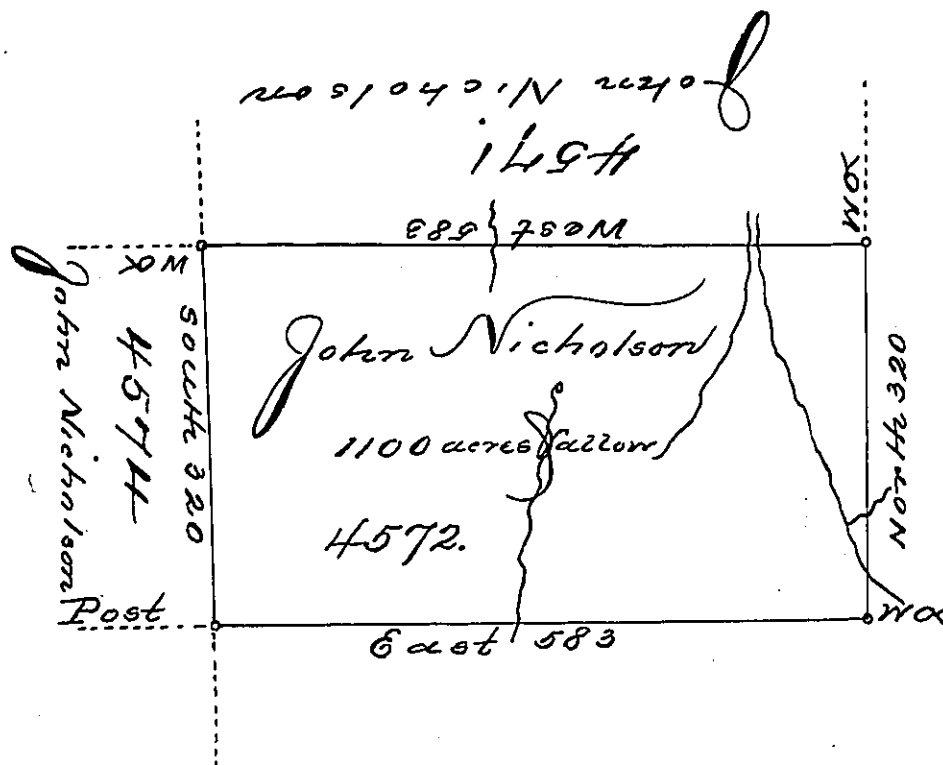 John Nicholson
4571
West 583
WO
WO
John Nicholson
4574
South 320
John Nicholson
1100 acres & allow
4572.
North 320
Post
East 583
WO